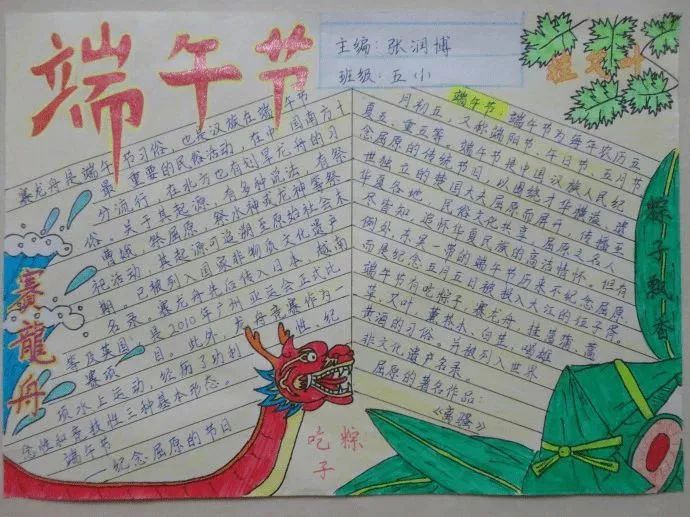 端午节
主编:张润博
班级:五小
赛龙舟是端午节习俗,也是汉族在端午节
最重要的民俗活动,在中国南方十
分流行,在北方也有划旱龙舟的习
俗。关于其起源,有多种说法,有祭
曹娥、祭屈原、祭水神或龙神等祭
祀活动,其起源可追溯至原始社会末
期。已被列入国家非物质文化遗产
名录。赛龙舟先后传入日本、越南
等及英国,是2010年广州亚运会正式比
赛项目。此外,龙舟竞赛作为一
项水上运动,经历了功利性、纪
念性和竞技性三种基本形态。
端午节
——纪念屈原的节日
端午节:端午节为每年农历五
月初五,又称端阳节、午日节、五月节
夏五、重五等。端午节是中国汉族人民纪
念屈原的传统节日,以围绕才华横溢、遗
世独立的楚国大夫屈原而展开,传播至
华夏各地,民俗文化共享,屈原之名人
尽皆知,追怀华夏民族的高洁情怀。但有
例外,东吴一带的端午节历来不纪念屈原,
而是纪念五月五日被投入大江的伍子胥。
端午节有吃粽子,赛龙舟,挂菖蒲、蒿
草、艾叶,薰苍术、白芷,喝雄
黄酒的习俗。并被列入世界
非文化遗产名录。
屈原的著名作品:
《离骚》
赛龍舟
粽子飘香
吃粽子